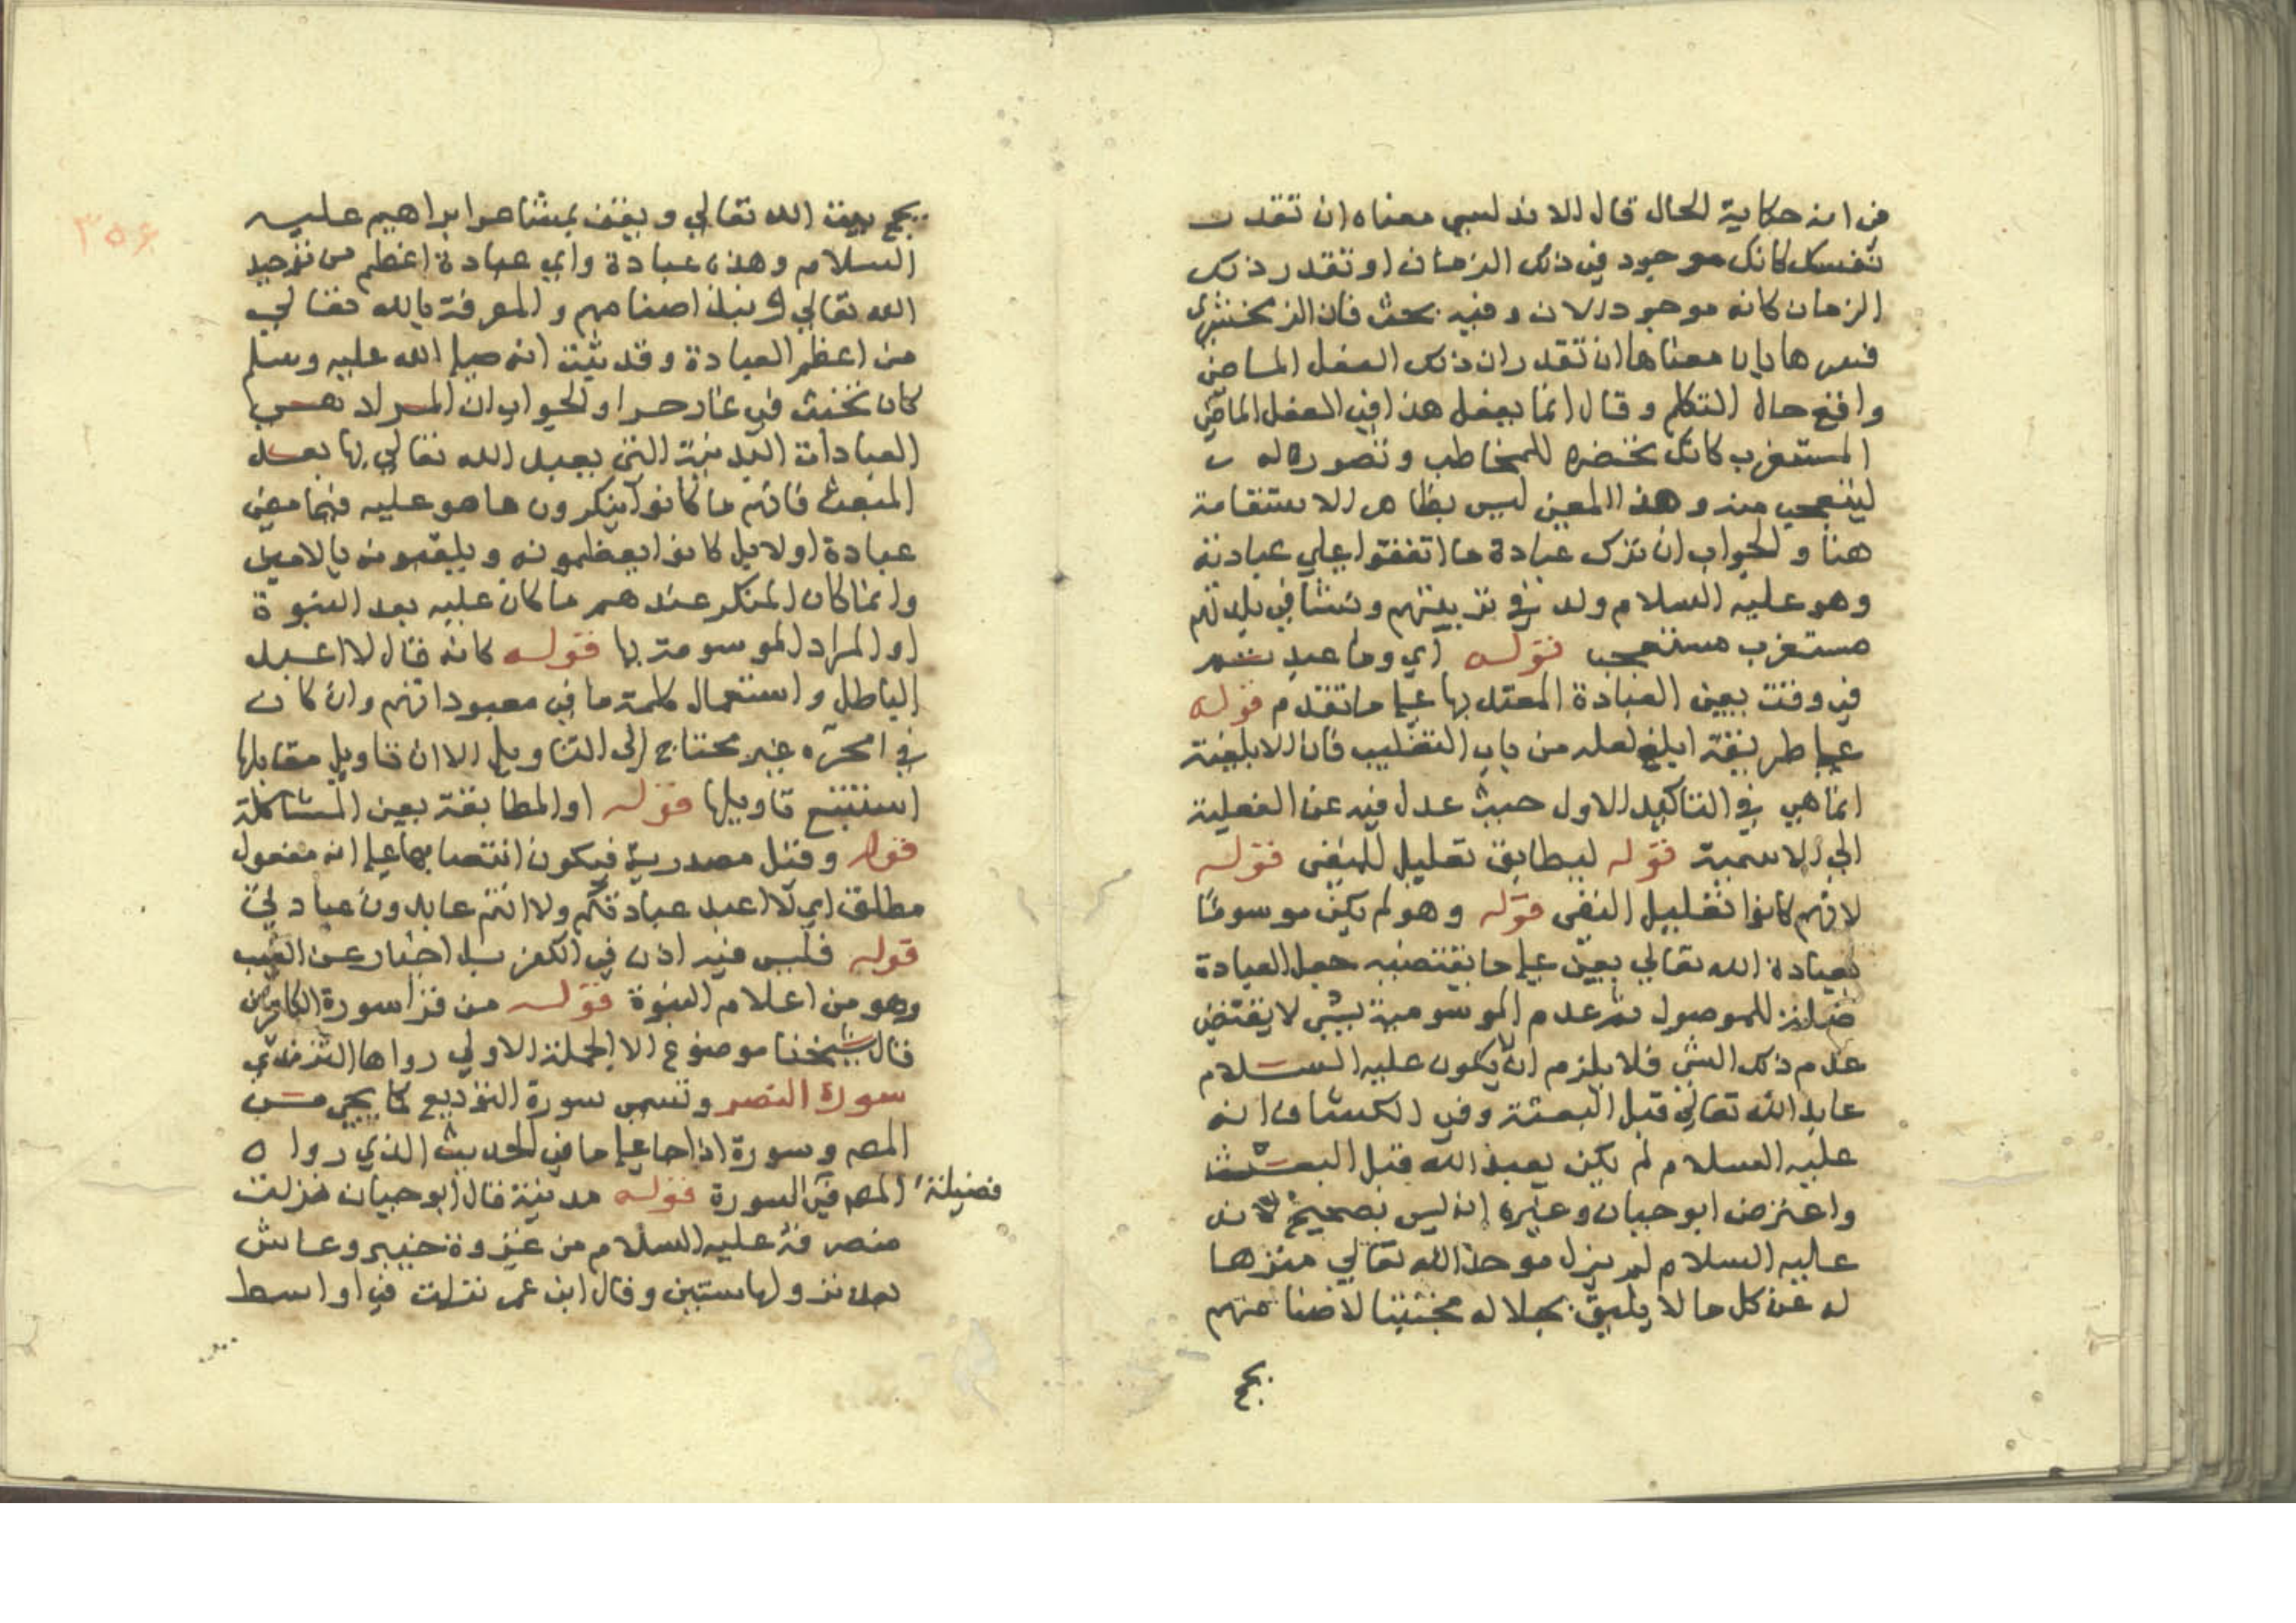 من انه حكاية الحال قال الاندلسي معناه ان تقدر
نفسك كانك موجود في ذلك الزمان او تقدر ذلك
الزمان كانه موجود الان وفيه بحث فان الزمخشري
فسرها بان معناها ان تقدر ان ذلك الفعل الماضي
واقع حال التكلم وقال انما يفعل هذا في الفعل الماضي
المستغرب كانك تحضره للمخاطب وتصوره له
ليتعجب منه وهذا المعين ليس بظاهر الاستقامة
هنا والجواب ان ترك عبادة ما اتفقوا علي عبادته
وهو عليه السلام ولد في تربيتهم ونشا في بلدتهم
مستغرب مستعجب قوله اي وما عبدتم
في وقت يعني العبادة المعتد بها علي ما تقدم قوله
علي طريقة ابلغ لعله من باب التغليب فان الابلغية
انما هي في التاكيد الاول حيث عدل فيه عن الفعلية
الي الاسمية قوله ليطابق تعليل للمنفي قوله
لانهم كانوا تعليل النفي قوله وهو لم يكن موسوما
بعبادة الله تعالي يعني علي ما يقتضيه جعل العبادة
صلة للموصول ثم عدم الموسومية بشي لا يقتضي
عدم ذلك الشي فلا يلزم ان لا يكون عليه السلام
عابد الله تعالي قبل البعثة وفي الكشاف انه
عليه السلام لم يكن يعبد الله قبل البعث
واعترض ابو حيان وغيره انه ليس بصحيح لانه
عليه السلام لم يزل موحد الله تعالي منزها
له عن كل ما لا يليق بجلاله مجتنبا لاصنامهم
يحج
٣٥٤
يحج بيت الله تعالي ويقف بمشاعر ابراهيم عليه
السلام وهذه عبادة واي عبادة اعظم من توحيد
الله تعالي ونبذ اصنامهم والمعرفة بالله تعالي
من اعظم العبادة وقد ثبت انه صلي الله عليه وسلم
كان يتحنث في غار حرا والجواب ان المراد نفي
العبادات البدنية التي يعبد الله تعالي بها بعد
المبعث فانهم ما كانوا ينكرون ما هو عليه فيما مضي
عبادة اولا بل كانوا يعظمونه ويلقبونه بالامين
وانما كان المنكر عندهم ما كان عليه بعد النبوة
او المراد الموسومة بها قوله كانه قال لا اعبد
الباطل واستعمال كلمة ما في معبوداتهم وان كان
في امحره غير محتاج الي التاويل الا ان تاويل مقابلها
استتبع تاويلها قوله او المطابقة يعني المشاكلة
قوله وقيل مصدرية فيكون انتصابها علي انه مفعول
مطلق اي لا اعبد عبادتكم ولا انتم عابدون عبادتي
قوله فليس فيه اذن في الكفر بل اخبار عن الغيب
وهو من اعلام النبوة قوله من قرا سورة الكافرين
قال شيخنا موضوع الا الجملة الاولي رواها الترمذي
سورة النصر وتسمي سورة التوديع كما يجي من
المصـ وسورة اذا جا علي ما في الحديث الذي رواه
المصـ في فضيلة السورة قوله مدنية قال ابو حيان نزلت
منصرفه عليه السلام من غزوة خيبر وعاش
بعد نزولها سنتين وقال ابن عمر نزلت في اواسط